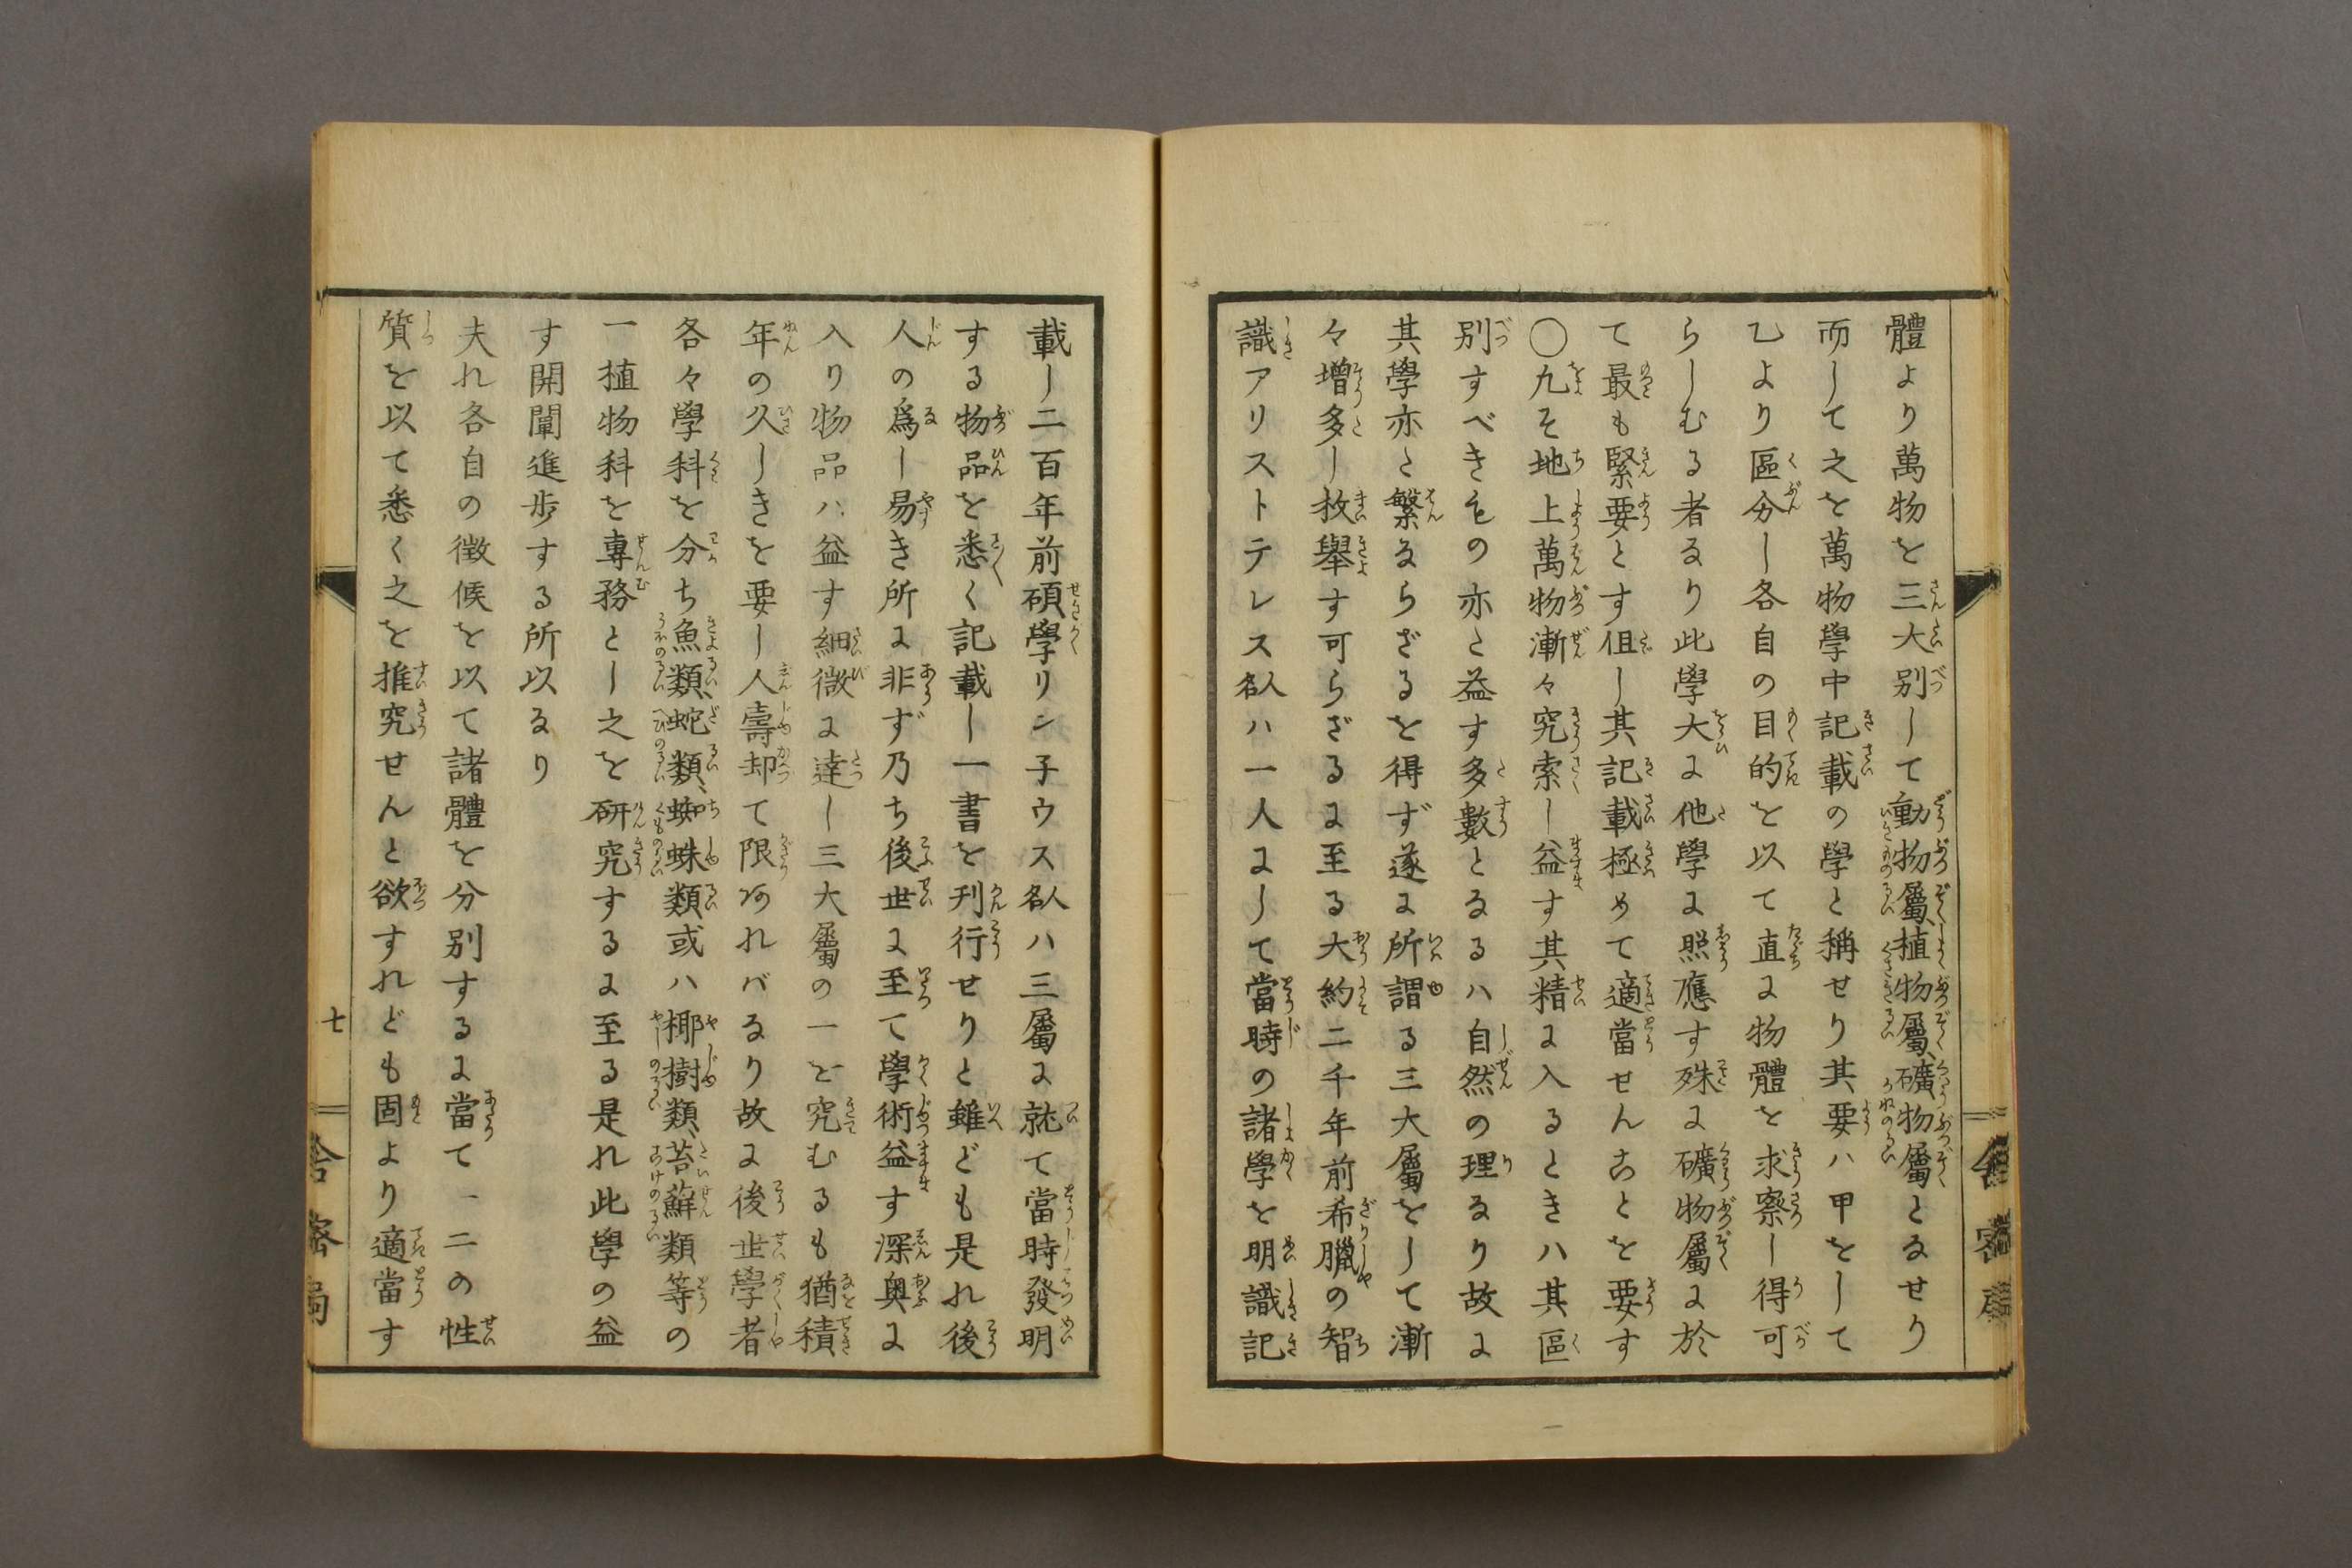 體より萬物を三大別して動物屬、植物屬、礦物屬となせり
而して之を萬物學中記載の學と稱せり其要ハ甲をして
乙より區分し各自の目的を以て直に物體を求察し得可
らしむる者なり此學大に他學に照應す殊に礦物屬に於
て最も緊要とす但し其記載極めて適當せんことを要す
〇凡そ地上萬物漸々究索し益す其精に入るときハ其區
別すべきもの亦た益す多數となるハ自然の理なり故に
其學亦た繁ならざるを得ず遂に所謂る三大屬をして漸
々增多し枚舉す可らざるに至る大約二千年前希臘の智
識アリストテレス人名ハ一人にして當時の諸學を明識記
載し二百年前碩學リン子ウス人名ハ三屬に就て當時發明
する物品を悉く記載し一書を刊行せりと雖ども是れ後
人の爲し易き所に非ず乃ち後世に至て學術益す深奥に
入り物品ハ益す細微に達し三大屬の一を究むるも猶積
年の久しきを要し人壽却て限あれバなり故に後世學者
各々學科を分ち魚類、蛇類、蜘蛛類或ハ椰樹類、苔蘚類等の
一植物科を專務とし之を研究するに至る是れ此學の益
す開闡進歩する所以なり
夫れ各自の徴候を以て諸體を分別するに當て一二の性
質を以て悉く之を推究せんと欲すれども固より適當す
七
舎密局